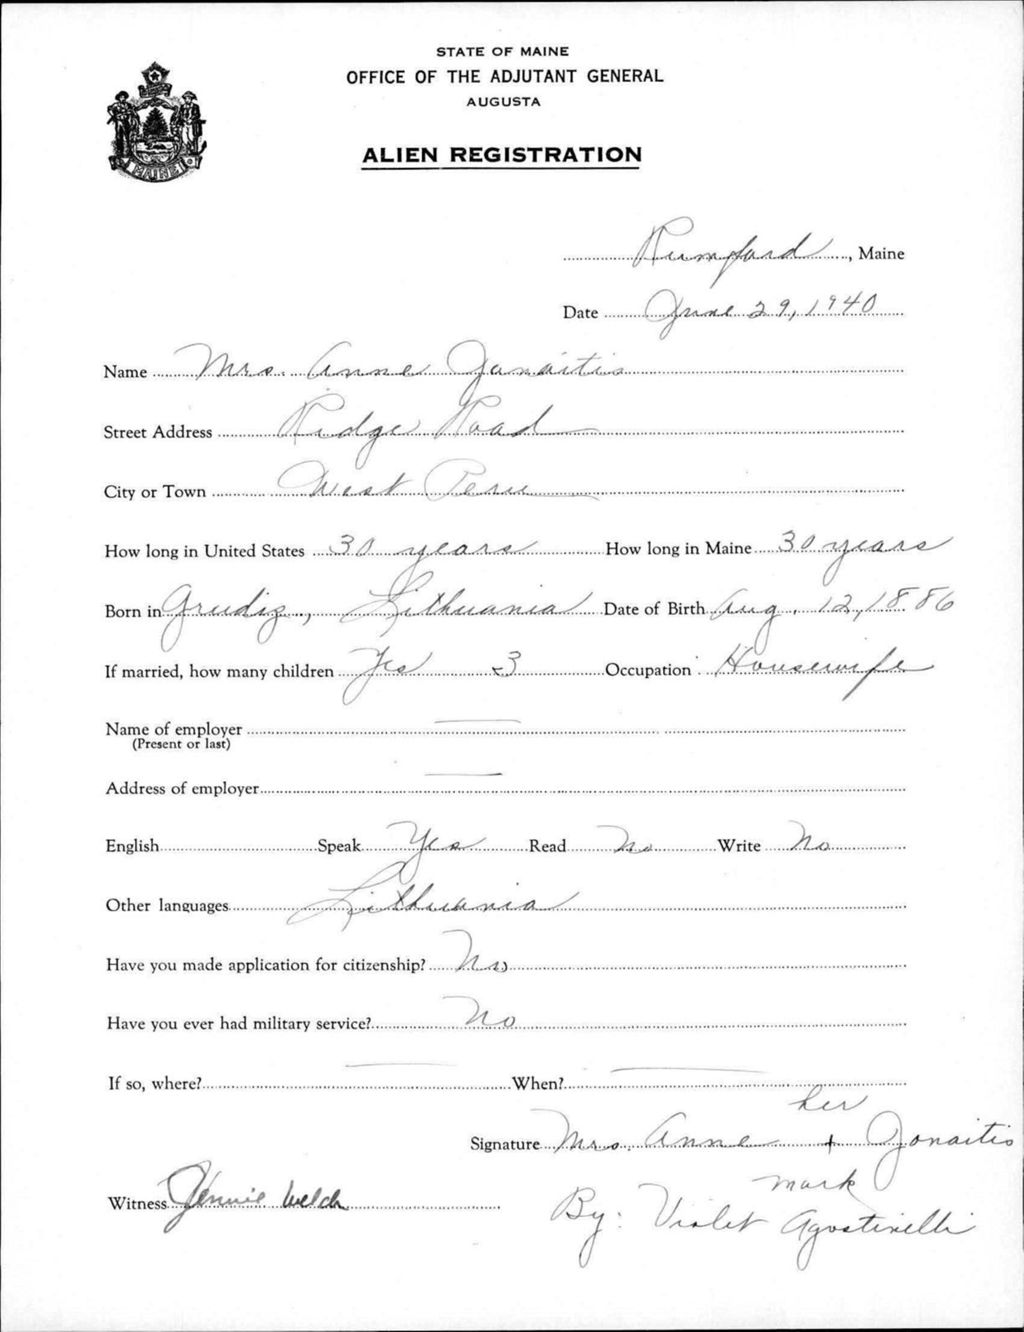 STATE OF MAINE
OFFICE OF THE ADJUTANT GENERAL
AUGUSTA
ALIEN REGISTRATION
MAINE
Rumford, Maine
Date June 29, 1940
Name Mrs. Anne Jonaitis
Street Address Ridge Road
City or Town West Peru
How long in United States 30 years How long in Maine 30 years
Born in Grudiz, Lithuania Date of Birth Aug. 12, 1886
If married, how many children Yes 3 Occupation Housewife
Name of employer
(Present or last)
Address of employer
English Speak Yes Read No Write No
Other languages Lithuania
Have you made application for citizenship? No
Have you ever had military service? No
If so, where? When?
her
Signature Mrs. Anne + Jonaitis
mark
Witness Jennie Welch
By: Violet Agostinelli